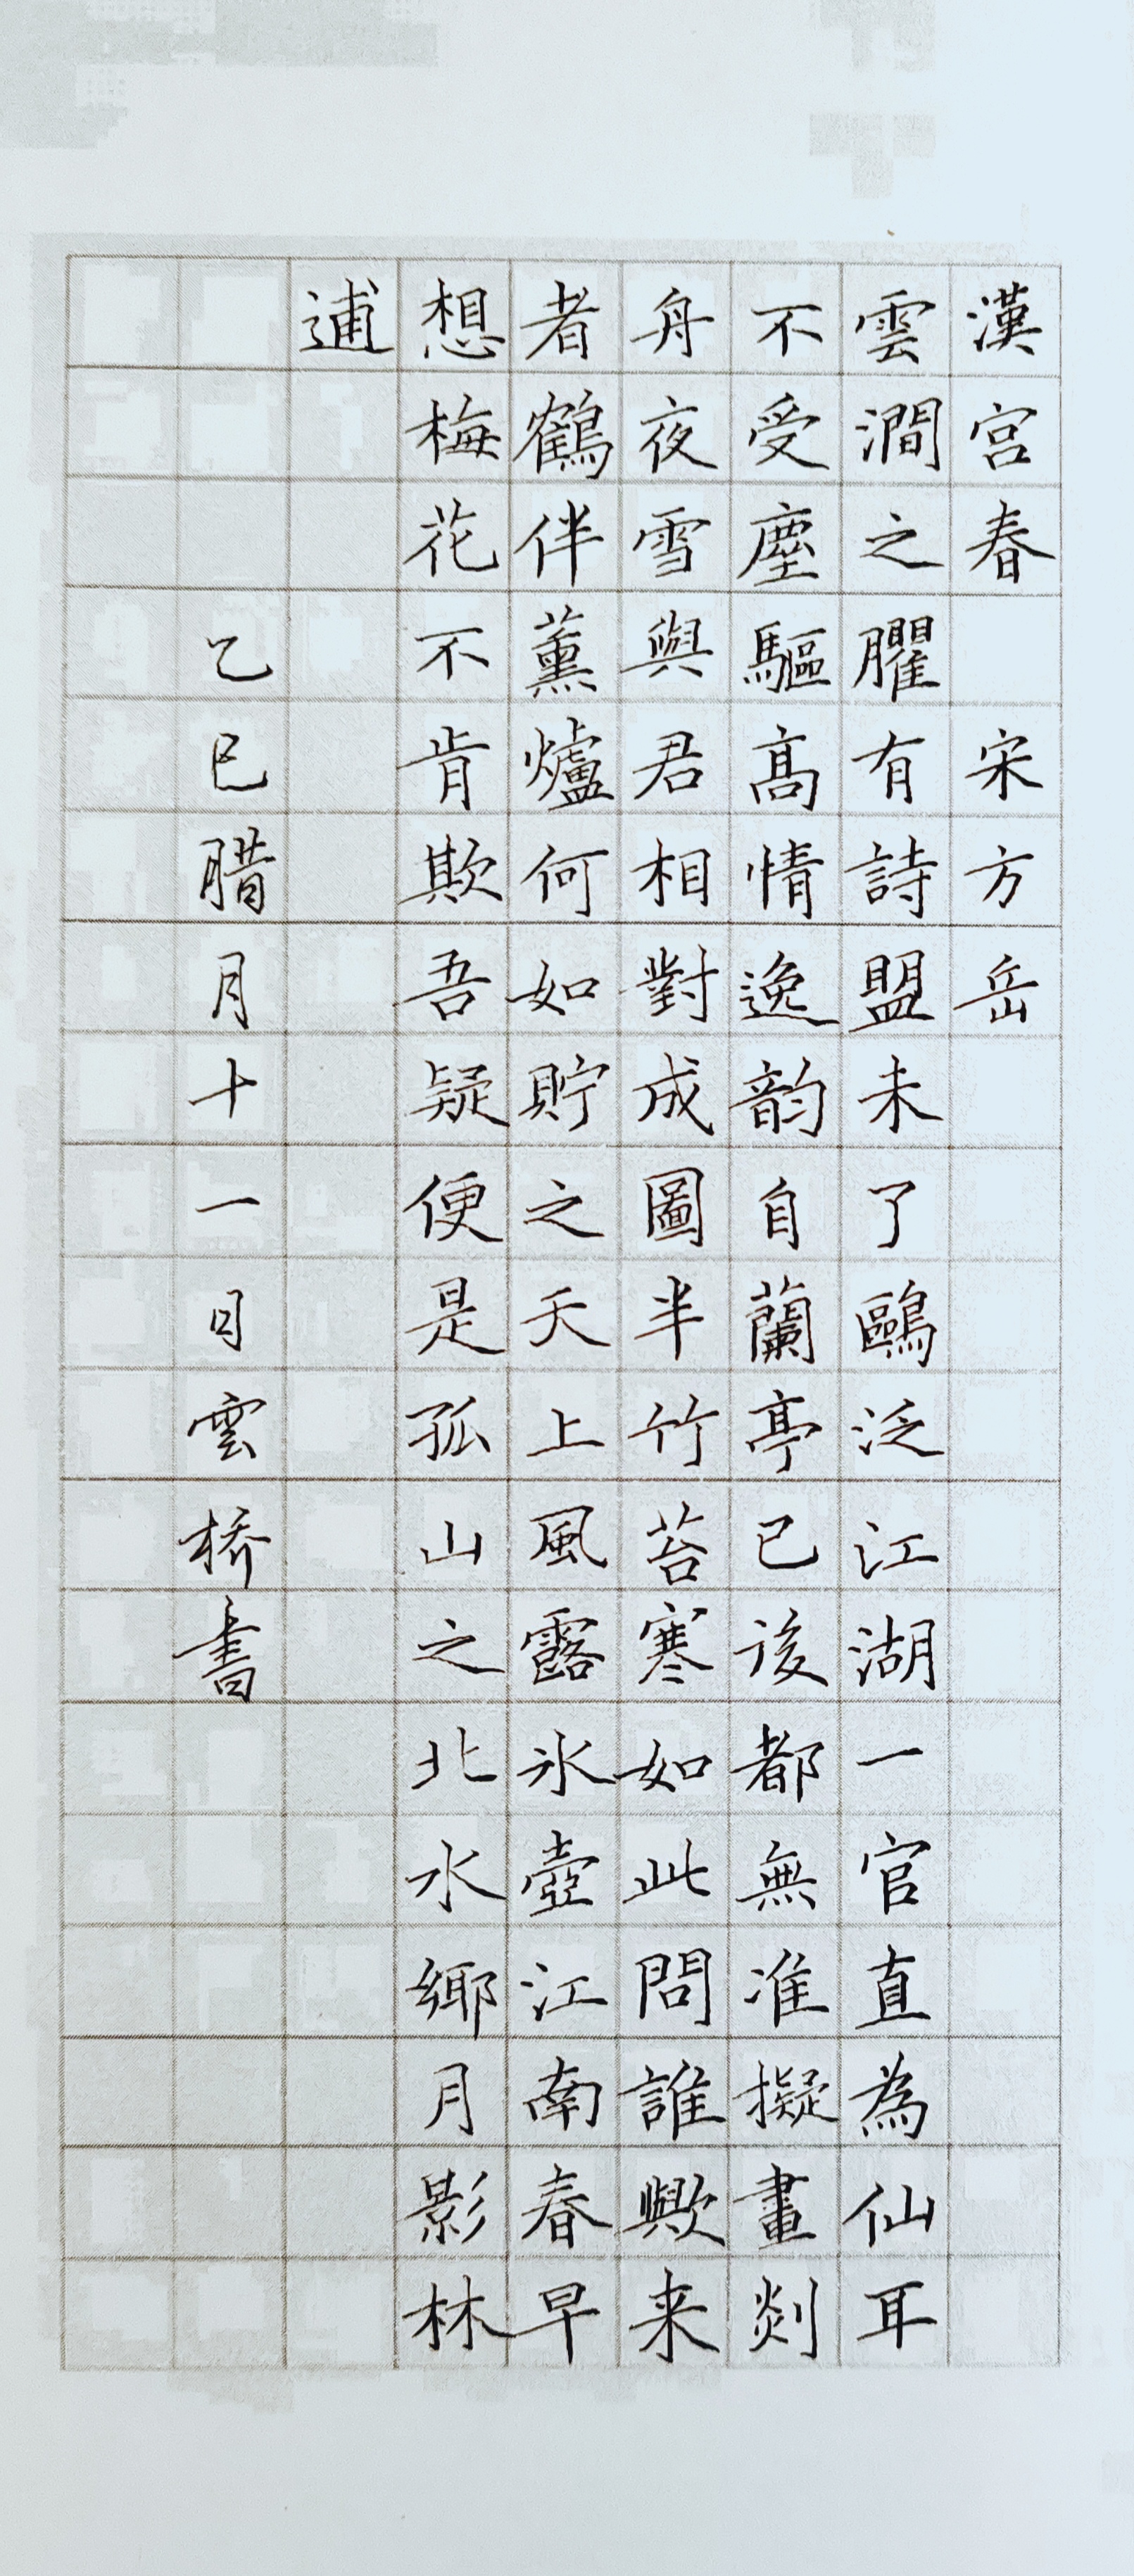 漢宮春 宋方岳
雲澗之臞有詩盟未了鷗泛江湖一官直為仙耳
不受塵驅髙情逸韵自蘭亭已後都無准擬畫剡
舟夜雪與君相對成圖半竹苔寒如此問誰歟来
者鶴伴薰爐何如貯之天上風露氷壺江南春早
想梅花不肯欺吾疑便是孤山之北水鄉月影林
逋
乙巳腊月十一日雲桥書